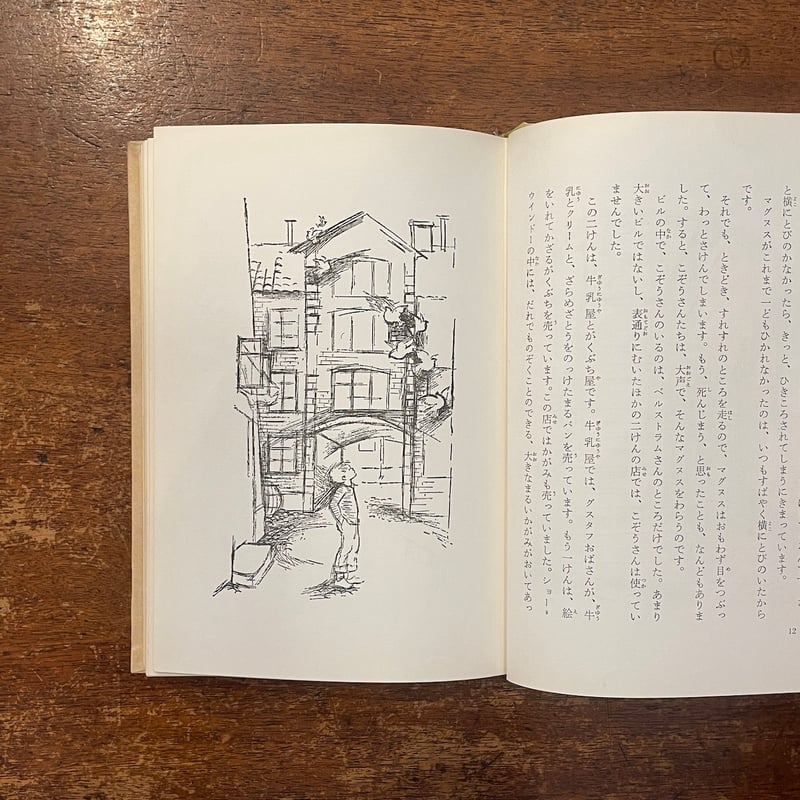 と横にとびのかなかったら、きっと、ひきころされてしまうにきまっています。
マグヌスがこれまで一どもひかれなかったのは、いつもすばやく横にとびのいたから
です。
それでも、ときどき、すれすれのところを走るので、マグヌスはおもわず目をつぶっ
て、わっとさけんでしまいます。もう、死んじまう、と思ったことも、なんどもありま
した。すると、こぞうさんたちは、大声で、そんなマグヌスをわらうのです。
ビルの中で、こぞうさんのいるのは、ベルストラムさんのところだけでした。あまり
大きいビルではないし、表通りにむいたほかの二けんの店では、こぞうさんは使ってい
ませんでした。
この二けんは、牛乳屋とがくぶち屋です。牛乳屋では、グスタフおばさんが、牛
乳とクリームと、ざらめざとうをのっけたまるパンを売っています。もう一けんは、絵
をいれてかざるがくぶちを売っています。この店ではかがみも売っていました。ショー・
ウインドーの中には、だれでものぞくことのできる、大きなまるいかがみがおいてあっ
12